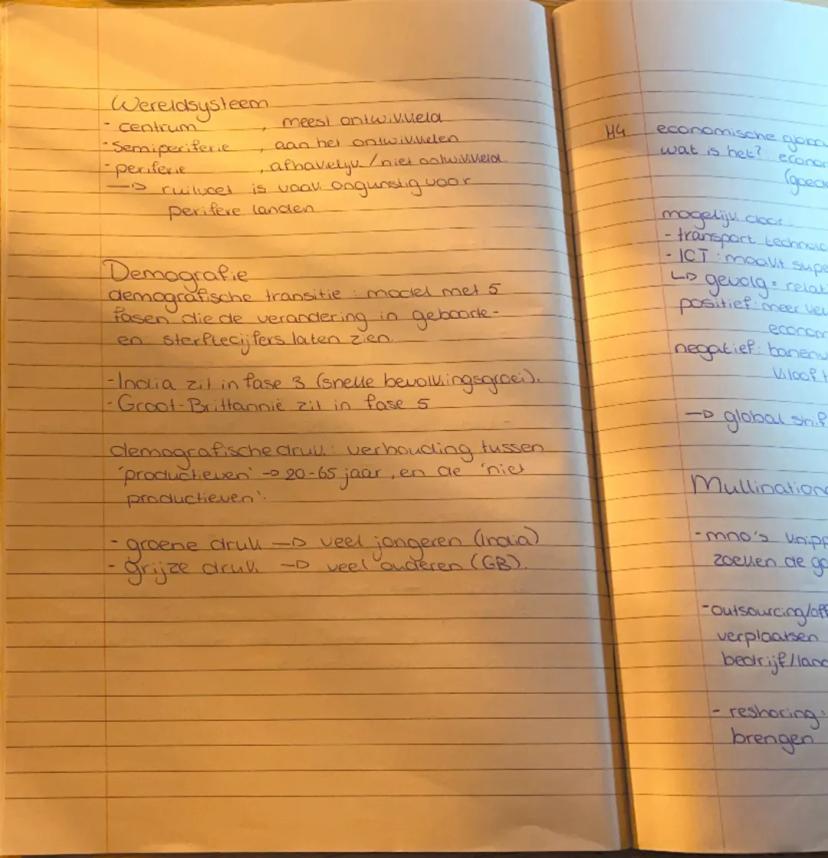 Wereldsysteem
- centrum , meest ontwikkeld
- semiperiferie , aan het ontwikkelen
- periferie , afhankelijk/niet ontwikkeld
→ ruilvoet is vaak ongunstig voor
perifere landen
Demografie
demografische transitie: model met 5
fasen die de verandering in geboorte-
en sterftecijfers laten zien.
- India zit in fase 3 (snelle bevolkingsgroei).
- Groot-Brittannië zit in fase 5
demografische druk: verhouding tussen
'productieven' → 20-65 jaar, en de 'niet
productieven'.
- groene druk → veel jongeren (India)
- grijze druk → veel ouderen (GB).
H4 economische
wat is het?
mogelijk door
- transport
- ICT: maakt
↳ gevolg =
positief: meer
negatief:
→ global
- mno's
zoeken de
- outsourcing/
verplaatsen
bedrijf/
- reshoring:
brengen